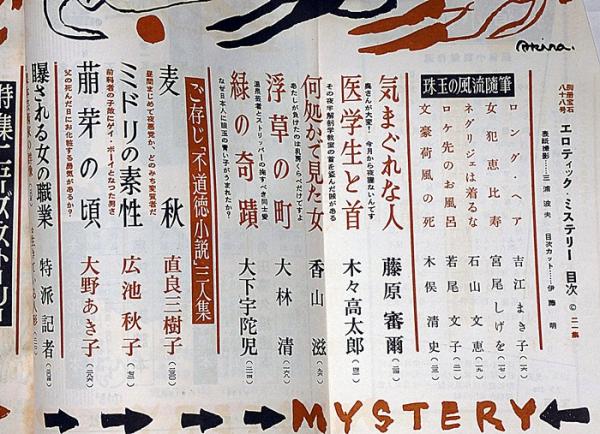 別冊宝石
八十八号
エロティック・ミステリー 目次 © 二一集
表紙撮影 三浦波夫 目次カット 伊勢明
珠玉の風流随筆
ロングヘア 吉江まき子
女犯恵比寿 宮尾しげを
ネグリジェは着るな 石山文恵
ロケ先のお風呂 若尾文子
文豪荷風の死 木俣清史
奥さんが大変! 今月から夜襲ないんです
気まぐれな人 藤原審爾
その夜半解剖学教室の首を盗んだ賊がある
医学生と首 木々高太郎
何処かで見た女 香山滋
あたしが負けたのは乳房くらべだけですよ
浮草の町 大林清
温泉芸者とストリッパーの掬すべき同士愛
緑の奇蹟 大下宇陀児
なぜ日本人に碧玉の青い子がうまれたか?
ご存じ「不道徳小説」三人集
麦秋 直良三樹子
昼間まじめで夜悪党か、どのみち変質者だ
ミドリの素性 広池秋子
前科者の子故にゲイ・ボーイとなった悶さ
萠芽の頃 大野あき子
父の死んだ日にお化粧する勇気があるか?
曝される女の職業 特派記者
特集ニューズストーリイ
Akira.
MYSTERY